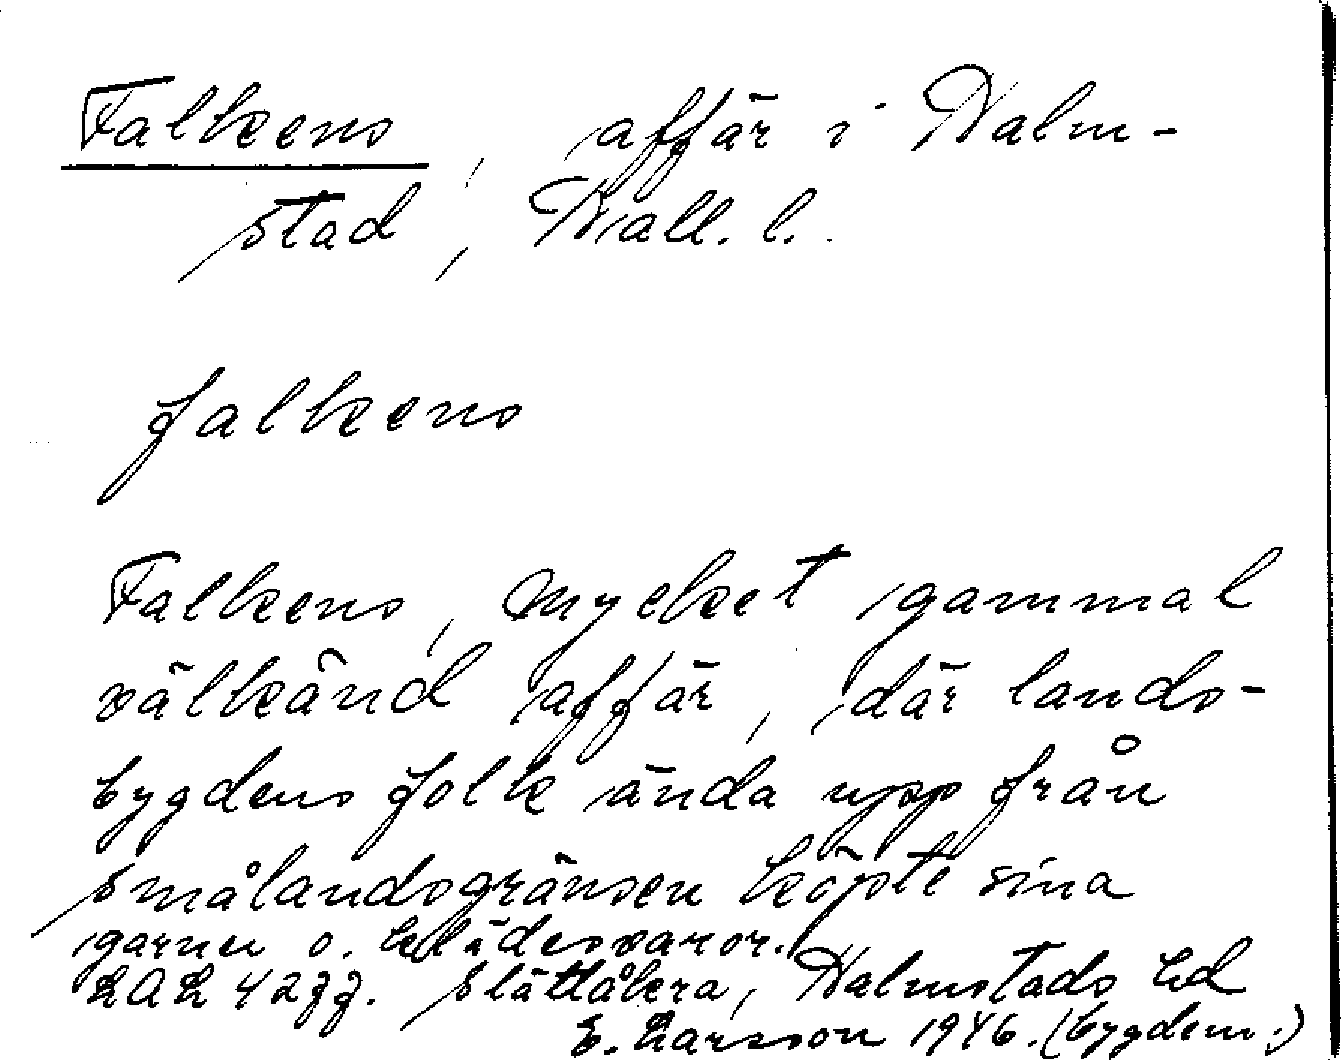 Falkens, affär i Halm-
stad, Hall. l.
falkens
Falkens, mycket gammal
välkänd affär, där lands-
bygdens folk ända upp från
smålandsgränsen köpte sina
garner o. klädesvaror.
Slättåkra, Halmstads hd
E. Larsson 1946. (bygdem.)